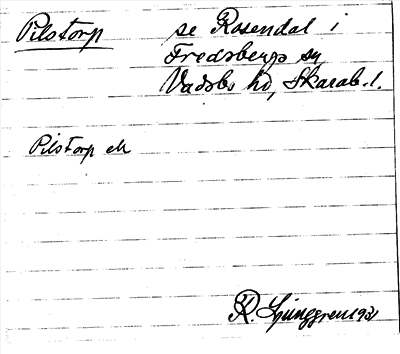 Pilstorp se Rosendal i
Fredsbergs sn
Vadsbo hd, Skarab. l.
Pilstorp ek
R. Ljunggren 1931